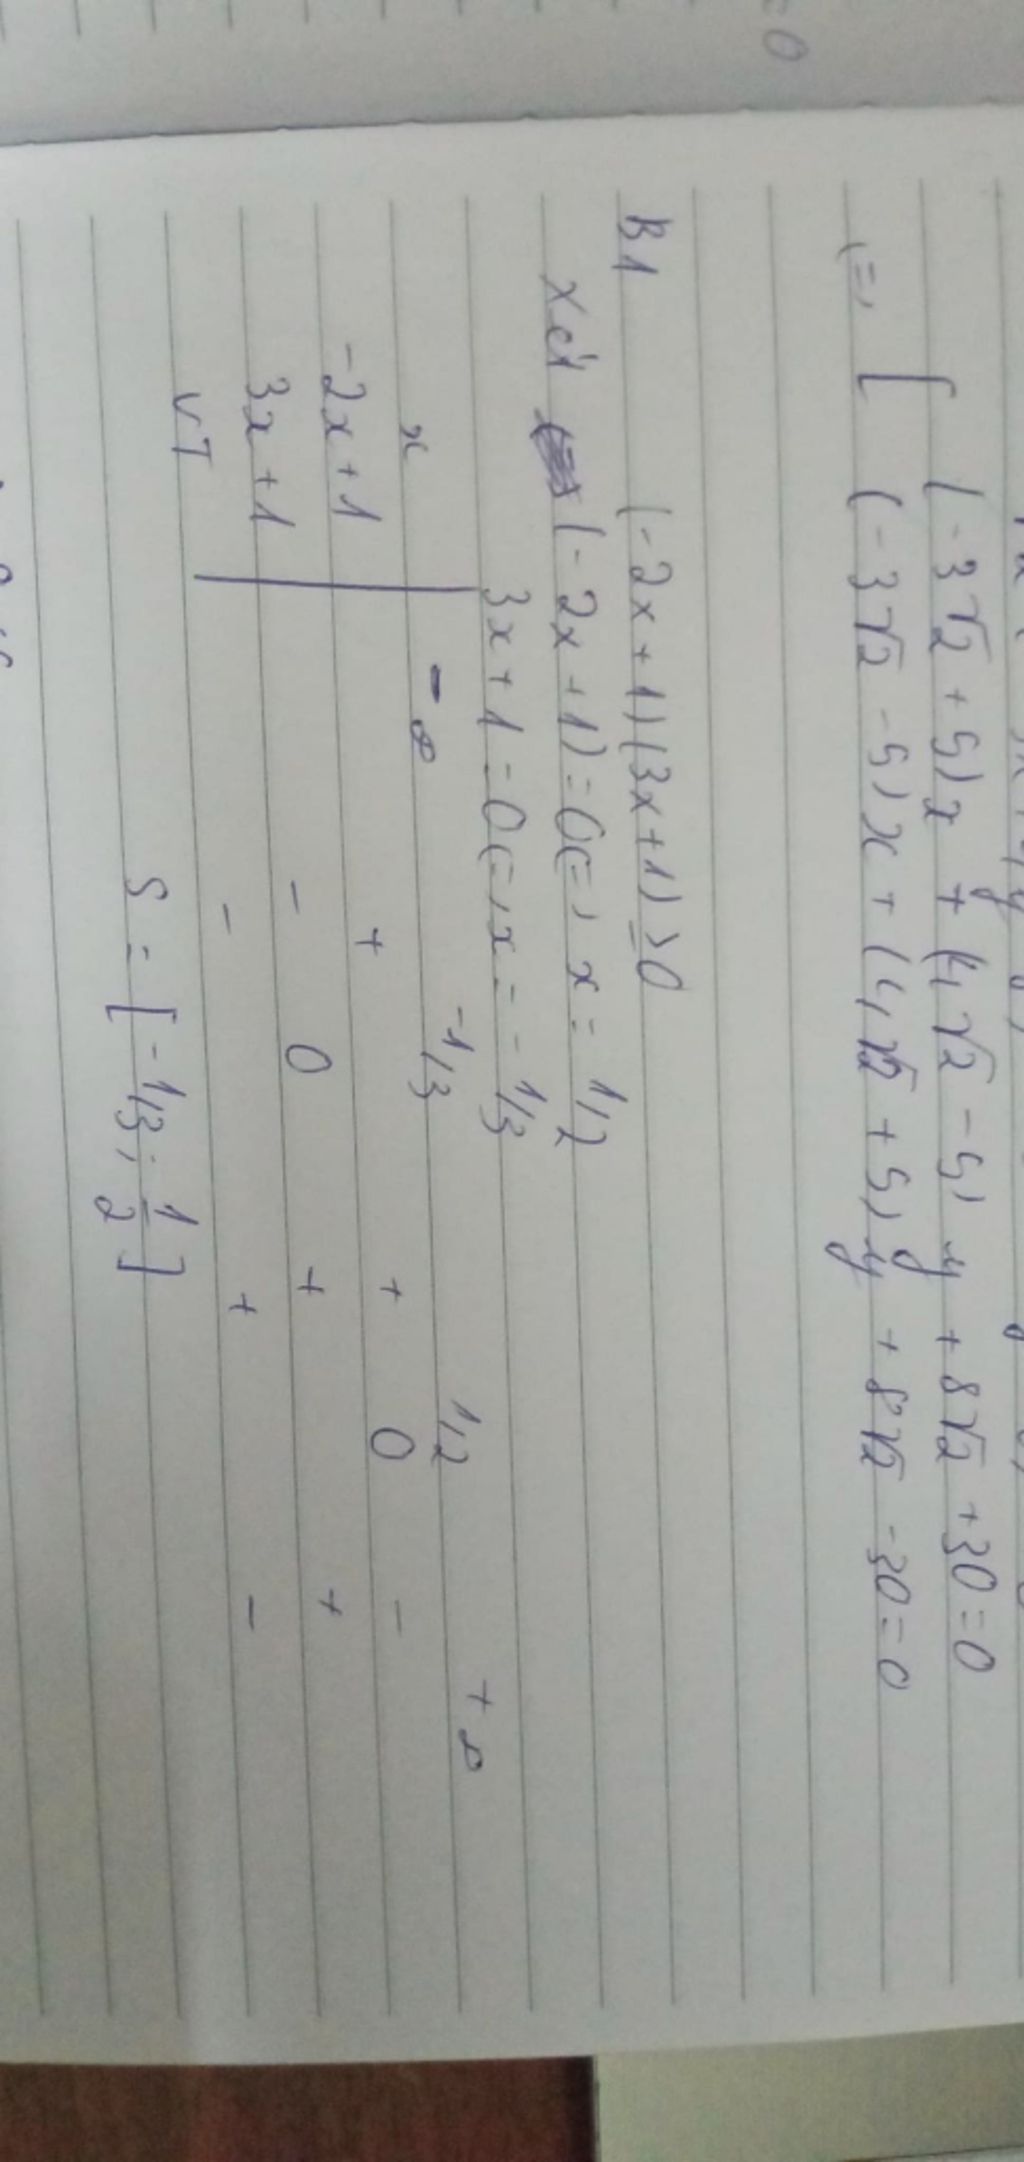 =0
(-3√2 + 5)x + (4√2 - 5)y + 8√2 + 30 = 0
<=> [ (-3√2 - 5)x + (4√2 + 5)y + 8√2 - 30 = 0
B1 (-2x+1)(3x+1) ≥ 0
xét (-2x+1) = 0 <=> x = 1/2
3x+1 = 0 <=> x = -1/3
x -∞ -1/3 1/2 +∞
-2x+1 + + 0 -
3x+1 - 0 + +
VT - + -
S = [-1/3; 1/2]